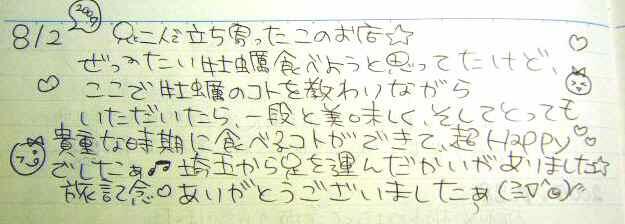 2009
8/2 兄と二人で立ち寄ったこのお店☆
ぜったい牡蠣食べようと思ってたけど、
ここで牡蠣のコトを教わりながら
いただいたら、一段と美味しく、そしてとっても
貴重な時期に食べるコトができて、超Happy
でしたぁ♫ 埼玉から足を運んだかいがありました☆
旅記念♡ありがとうございましたぁ(≧∇^☺)